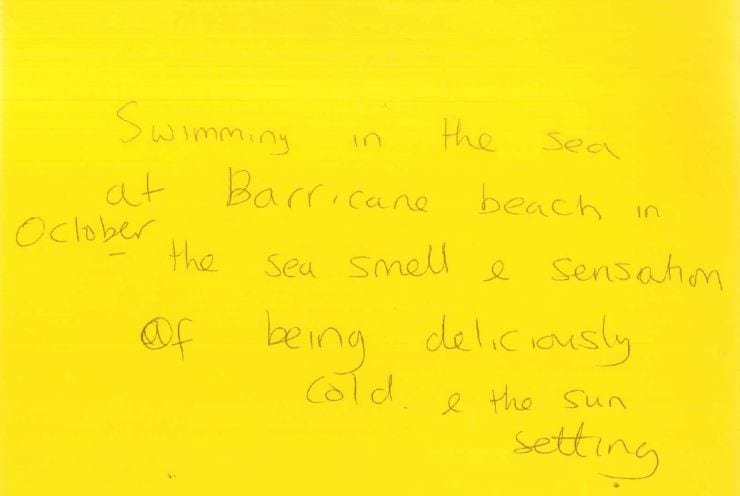 Swimming in the sea
at Barricane beach in
October
the sea smell & sensation
of being deliciously
cold. & the sun
setting